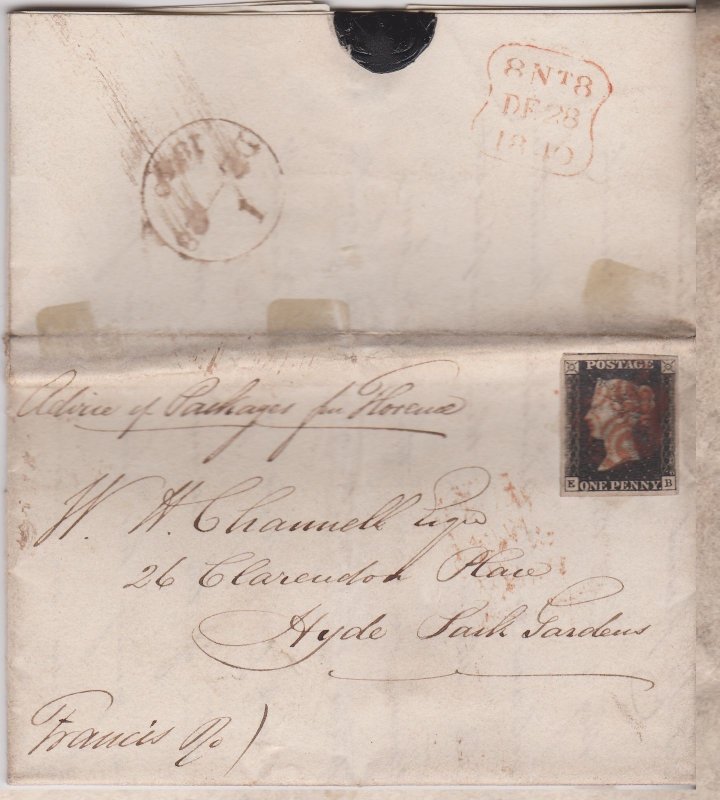 8NT8
DE28
1840
Advice of Packages for Florence
POSTAGE
E B
ONE PENNY
W. H. Channell Esqre
26 Clarendon Place
Hyde Park Gardens
Francis